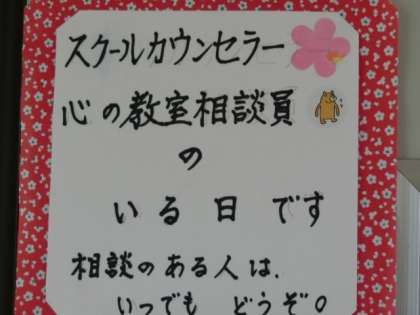 スクールカウンセラー
心の教室相談員
の
いる日です
相談のある人は、
いつでも どうぞ。